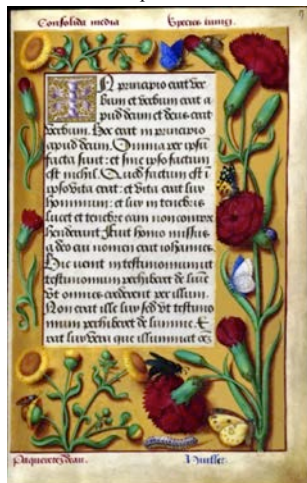 Consolida media
Species
In principio erat ver
bum et verbum erat a
pud deum et deus erat
verbum. Hoc erat in principio
apud deum. Omnia per ipsū
facta sunt: et sine ipso factum
est nichil. Quod factum est ī
ipso vita erat: et vita erat lux
hominum: et lux in tenebris
lucet et tenebre eam non compre
henderunt. Fuit homo missus
a deo cui nomen erat iohannes.
Hic venit in testimonium ut
testimonium perhiberet de lumīe
Ut omnes crederent per illum.
Non erat ille lux sed ut testimo
nium perhiberet de lumine. E
rat lux vera que illuminat oēm